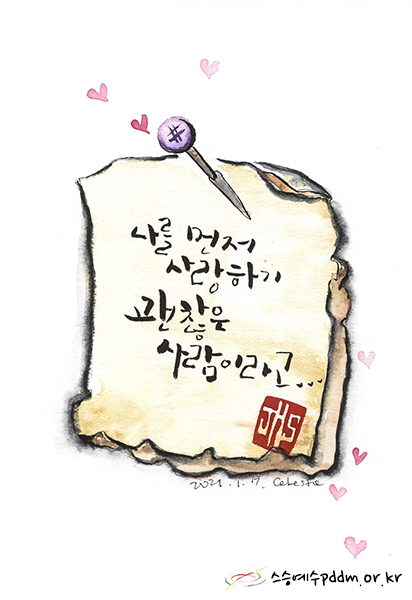 #
나를 먼저
사랑하기
괜찮은
사람이라고...
JHS
2021. 1. 17. Celeste
스승예수pddm.or.kr